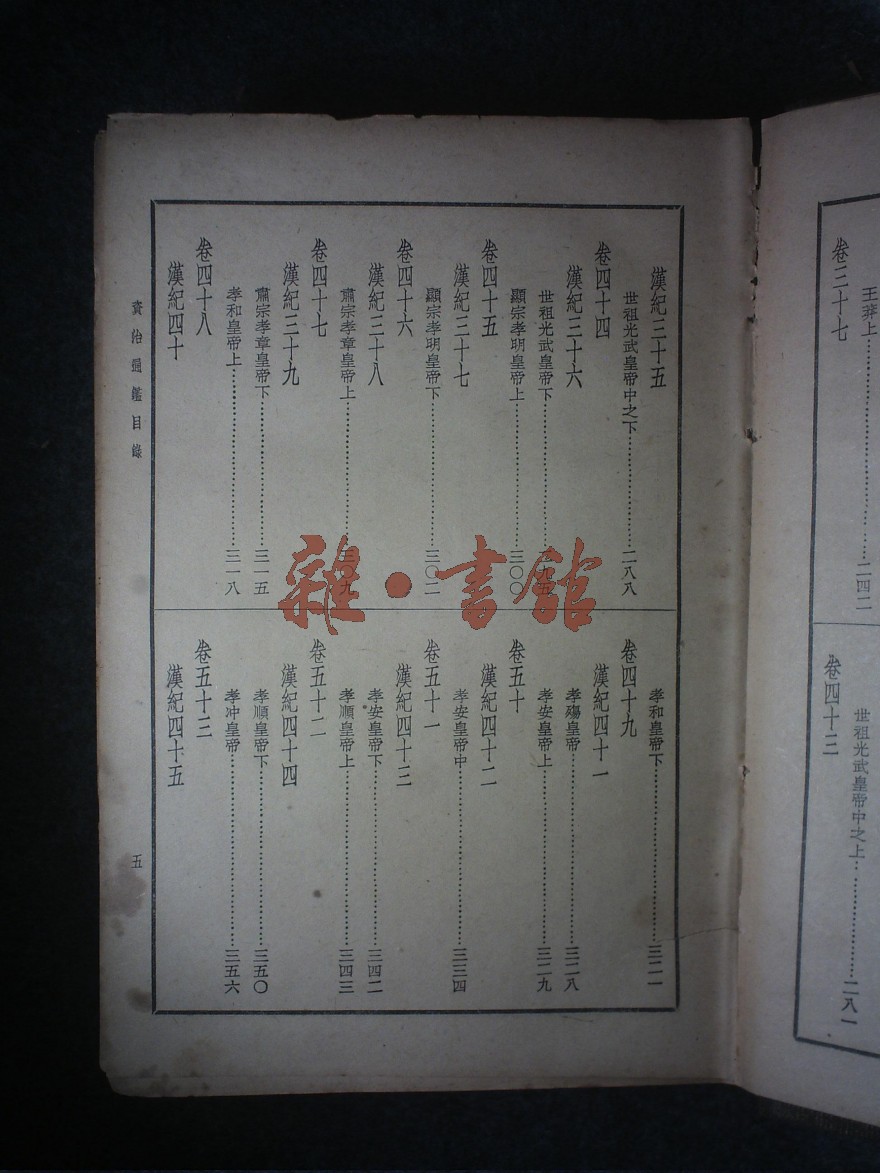 王莽上……二四二
卷三十七
世祖光武皇帝中之上……二八一
卷四十三
漢紀三十五
世祖光武皇帝中之下……二八八
卷四十四
漢紀三十六
世祖光武皇帝下
顯宗孝明皇帝上……三〇〇
卷四十五
漢紀三十七
顯宗孝明皇帝下……三〇二
卷四十六
漢紀三十八
肅宗孝章皇帝上……三〇九
卷四十七
漢紀三十九
肅宗孝章皇帝下……三一五
孝和皇帝上……三一八
卷四十八
漢紀四十
孝和皇帝下……三二一
卷四十九
漢紀四十一
孝殤皇帝……三二八
孝安皇帝上……三二九
卷五十
漢紀四十二
孝安皇帝中……三三四
卷五十一
漢紀四十三
孝安皇帝下……三四二
孝順皇帝上……三四三
卷五十二
漢紀四十四
孝順皇帝下……三五〇
孝冲皇帝……三五六
卷五十三
漢紀四十五
資治通鑑目錄
五
雜·書館